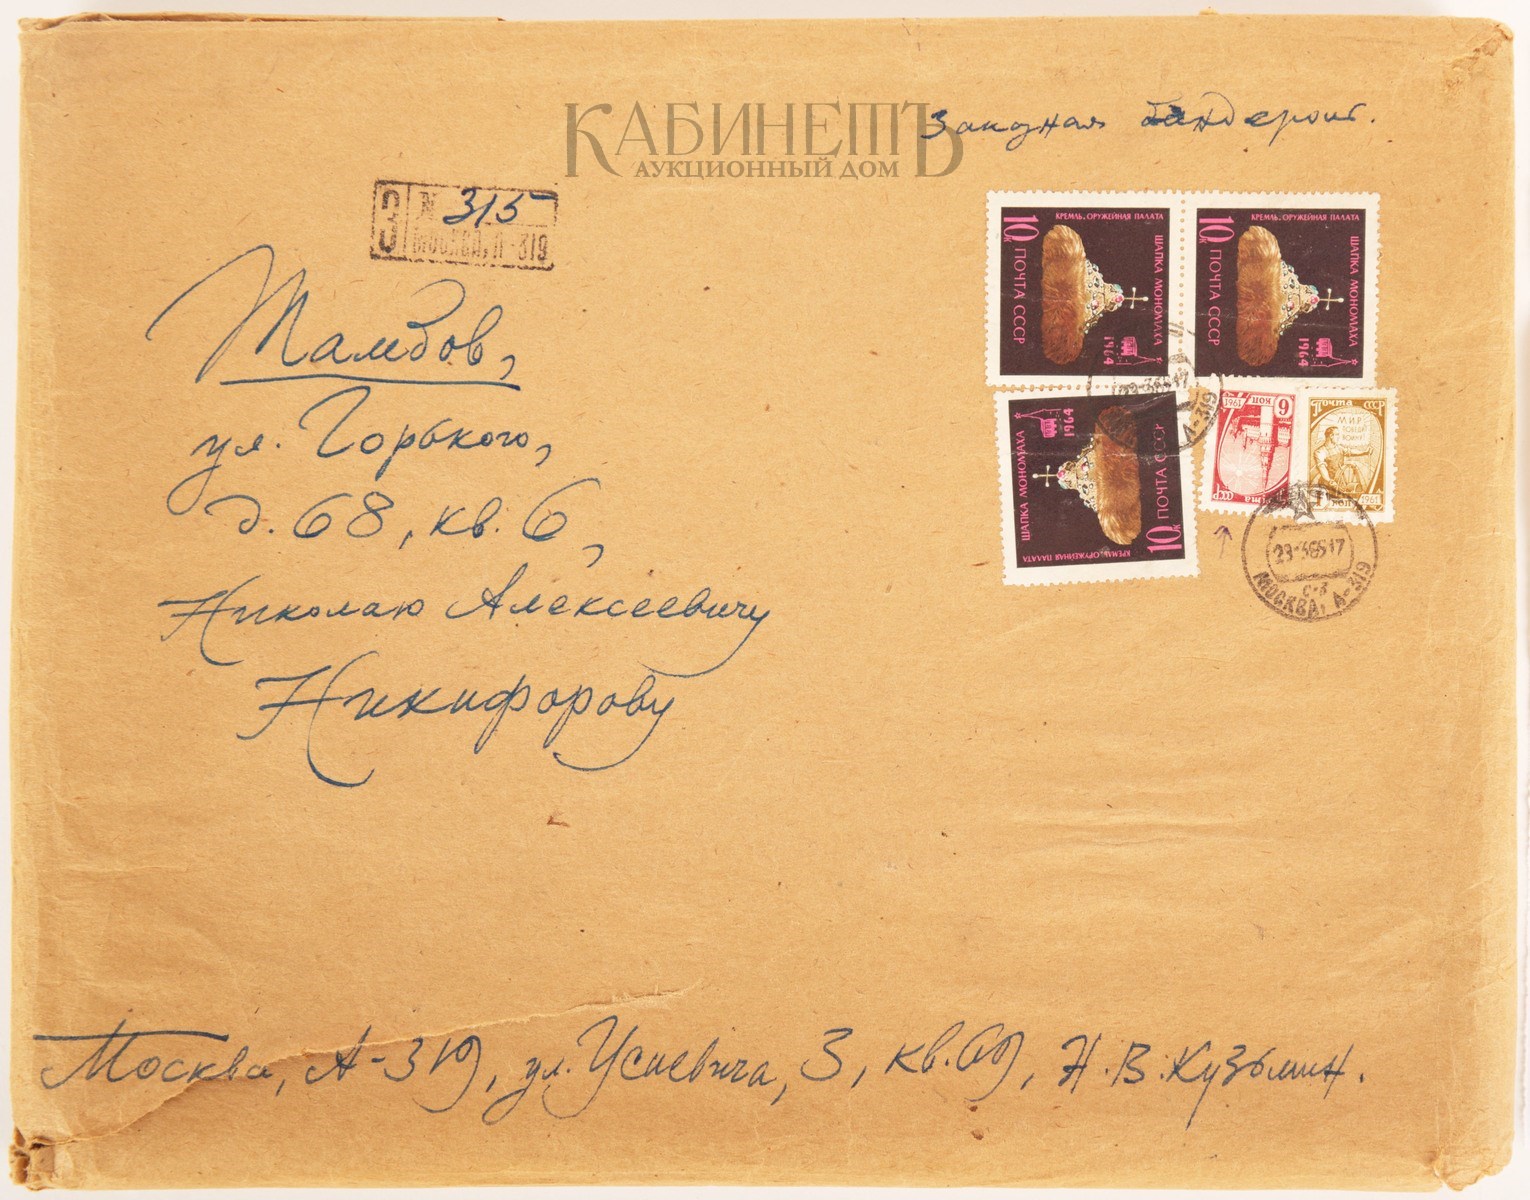 КАБИНЕТЪ
АУКЦИОННЫЙ ДОМ
Заказная бандероль.
З № 315
МОСКВА, А-319
КРЕМЛЬ. ОРУЖЕЙНАЯ ПАЛАТА
10к ПОЧТА СССР
ШАПКА МОНОМАХА
1964
КРЕМЛЬ. ОРУЖЕЙНАЯ ПАЛАТА
10к ПОЧТА СССР
ШАПКА МОНОМАХА
1964
КРЕМЛЬ. ОРУЖЕЙНАЯ ПАЛАТА
10к ПОЧТА СССР
ШАПКА МОНОМАХА
1964
1961 6 КОП
ПОЧТА СССР
МИР
ПОБЕДИТ
ВОЙНУ!
1 КОП 1961
А-319
23-36517
С-3
МОСКВА, А-319
Тамбов,
ул. Горького,
д. 68, кв. 6,
Николаю Алексеевичу
Никифорову
Москва, А-319, ул. Усиевича, 3, кв. 69, Н. В. Кузьмин.